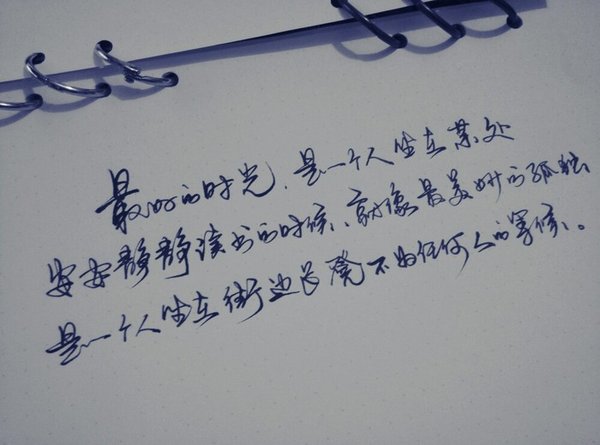 最好的时光，是一个人坐在某处
安安静静读书的时候、就像最美妙的孤独
是一个人坐在街边长凳不为任何人的等候。